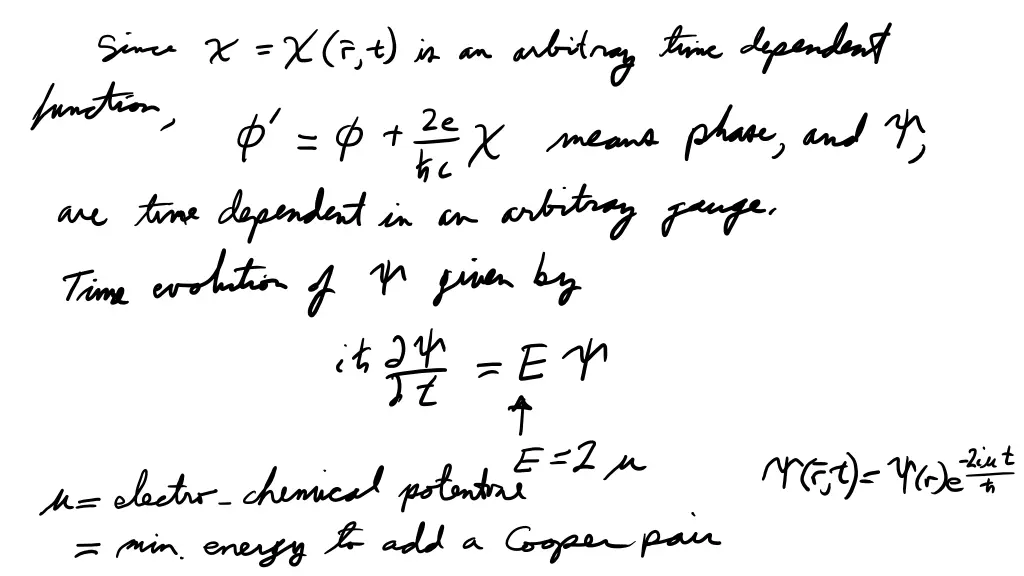 Since χ = χ(r̄,t) is an arbitray time dependent
function,
ϕ′ = ϕ + 2e/ħc χ means phase, and Ψ,
are time dependent in an arbitray gauge.
Time evolution of Ψ given by
iħ ∂Ψ/∂t = E Ψ
↑
E = 2μ
Ψ(r̄,t) = Ψ(r)e^(-2iμt/ħ)
μ = electro-chemical
= min. energy to add a Cooper pair